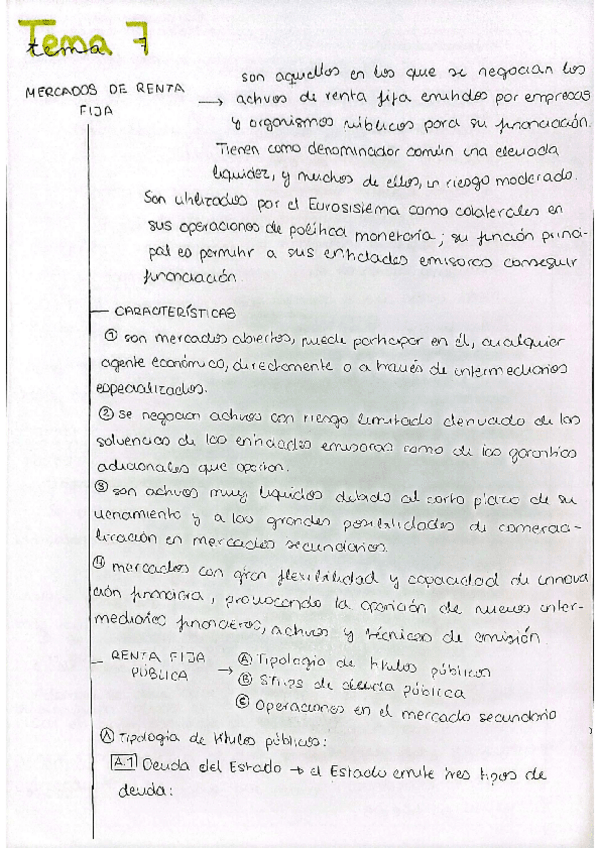 Tema 7
MERCADOS DE RENTA
FIJA
→ son aquellos en los que se negocian los
activos de renta fija emitidos por empresas
y organismos públicos para su financiación.
Tienen como denominador común una elevada
liquidez, y muchos de ellos, un riesgo moderado.
Son utilizados por el Eurosistema como colaterales en
sus operaciones de política monetaria; su función princi-
pal es permitir a sus entidades emisoras conseguir
financiación.
CARACTERÍSTICAS
① son mercados abiertos, puede participar en él, cualquier
agente económico, directamente o a través de intermediarios
especializados.
② se negocian activos con riesgo limitado derivado de las
solvencias de las entidades emisoras como de las garantías
adicionales que aportan.
③ son activos muy líquidos debido al corto plazo de su
vencimiento y a las grandes posibilidades de comercia-
lización en mercados secundarios.
④ mercados con gran flexibilidad y capacidad de innova
ción financiera, provocando la aparición de nuevos inter-
mediarios financieros, activos y técnicas de emisión
RENTA FIJA
PÚBLICA
→ Ⓐ Tipología de títulos públicos
Ⓑ Strips de deuda pública
Ⓒ Operaciones en el mercado secundario
Ⓐ Tipología de títulos públicos:
A.1 Deuda del Estado → el Estado emite tres tipos de
deuda: